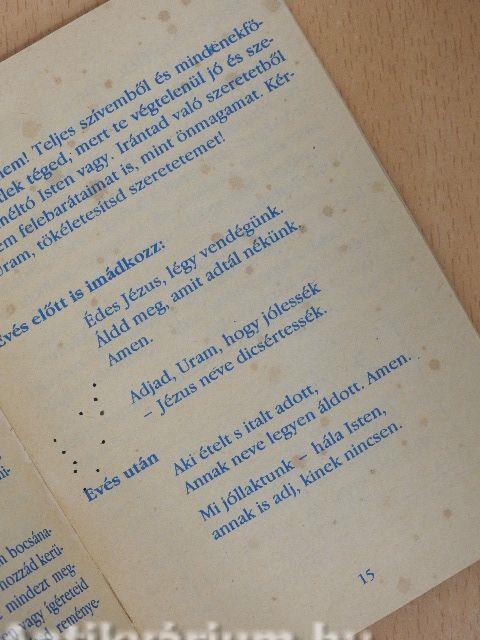 nem! Teljes szívemből és mindenekfö-
lek téged, mert te végtelenül jó és sze-
méltó Isten vagy. Irántad való szeretetből
em felebarátaimat is, mint önmagamat. Kér-
Uram, tökéletesítsd szeretetemet!
Evés előtt is imádkozz:
Édes Jézus, légy vendégünk.
Áldd meg, amit adtál nékünk.
Amen.
Adjad, Uram, hogy jólessék
– Jézus neve dicsértessék.
Evés után
Aki ételt s italt adott,
Annak neve legyen áldott. Amen.
Mi jóllaktunk – hála Isten,
annak is adj, kinek nincsen.
15
m bocsána-
hozzád kerü-
mindezt meg-
vagy ígéreteid
reménye-
Antikvárium.hu